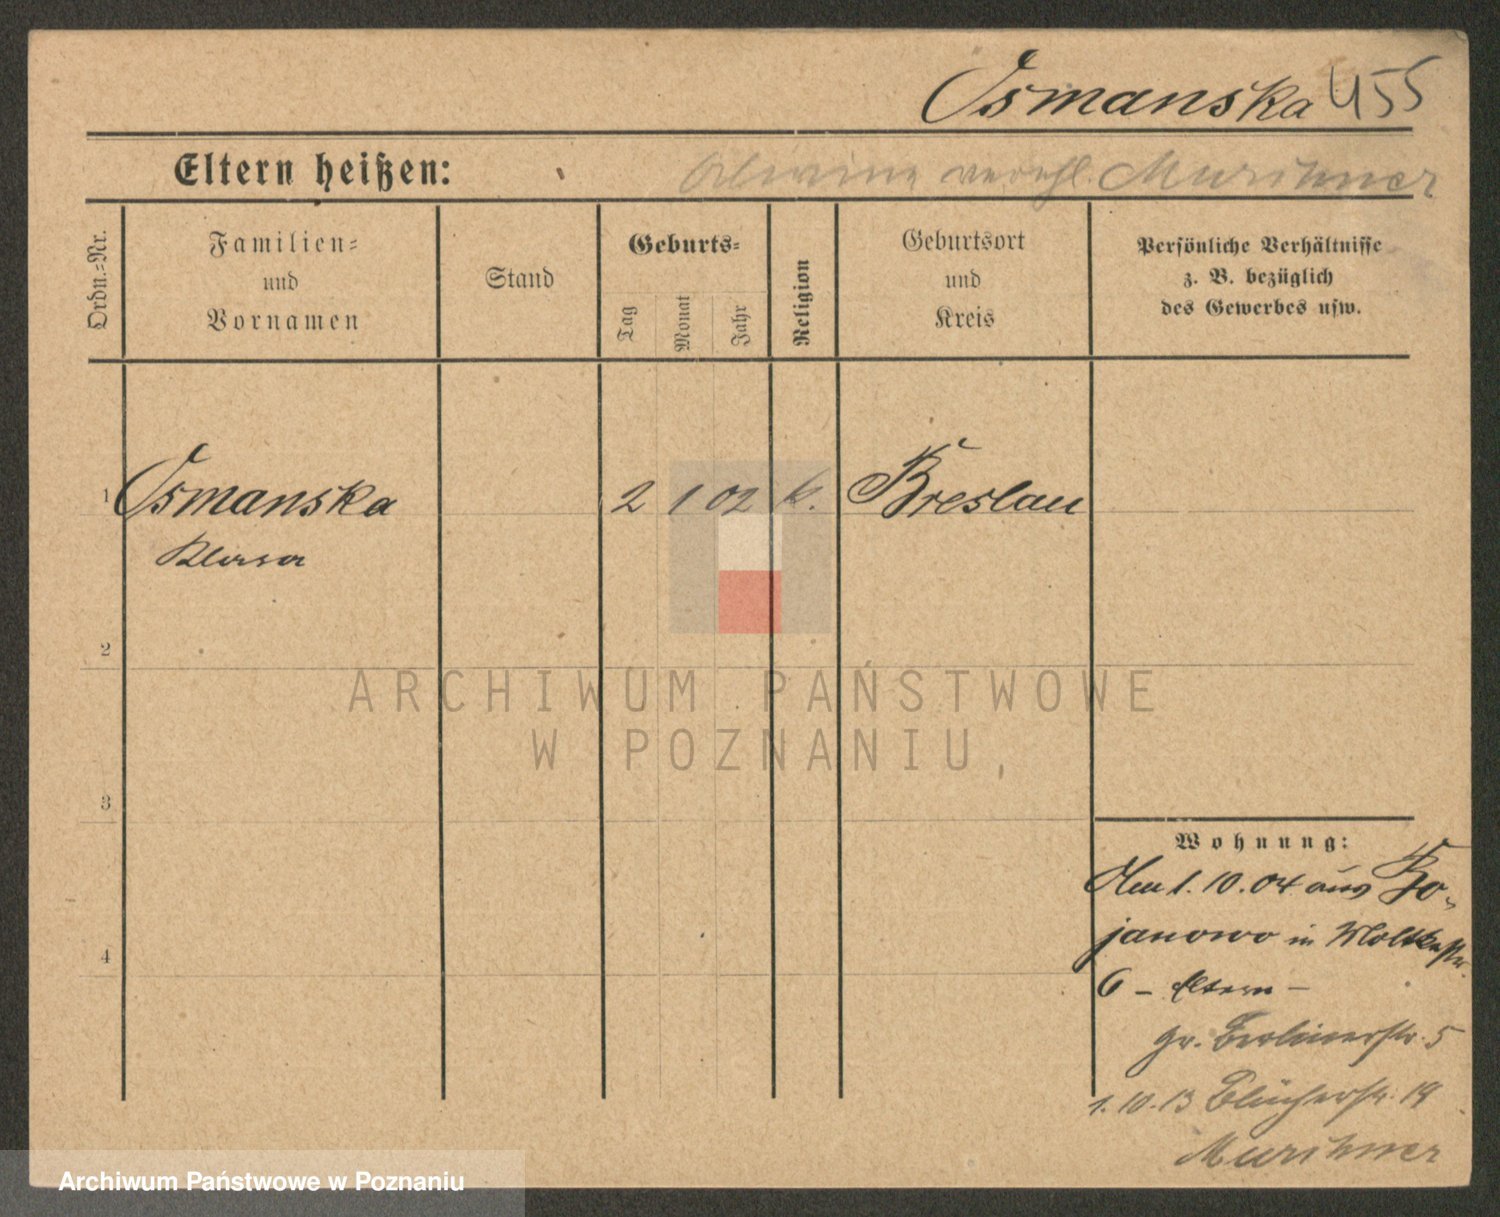 Osmanska 455
Eltern heißen: verehl.
Ordn.=Nr.
Familien=
und
Vornamen
Stand
Geburts=
Tag
Monat
Jahr
Religion
Geburtsort
und
Kreis
Persönliche Verhältnisse
z. B. bezüglich
des Gewerbes usw.
1 Osmanska 2 1 02 k. Breslau
Klara
2
3
4
ARCHIWUM PAŃSTWOWE
W POZNANIU,
Wohnung:
Am 1. 10. 04 aus Bo-
janowo in Moltkestr.
6 – Eltern –
gr. Berlinerstr. 5
1. 10. 13 Blücherstr. 19
Archiwum Państwowe w Poznaniu